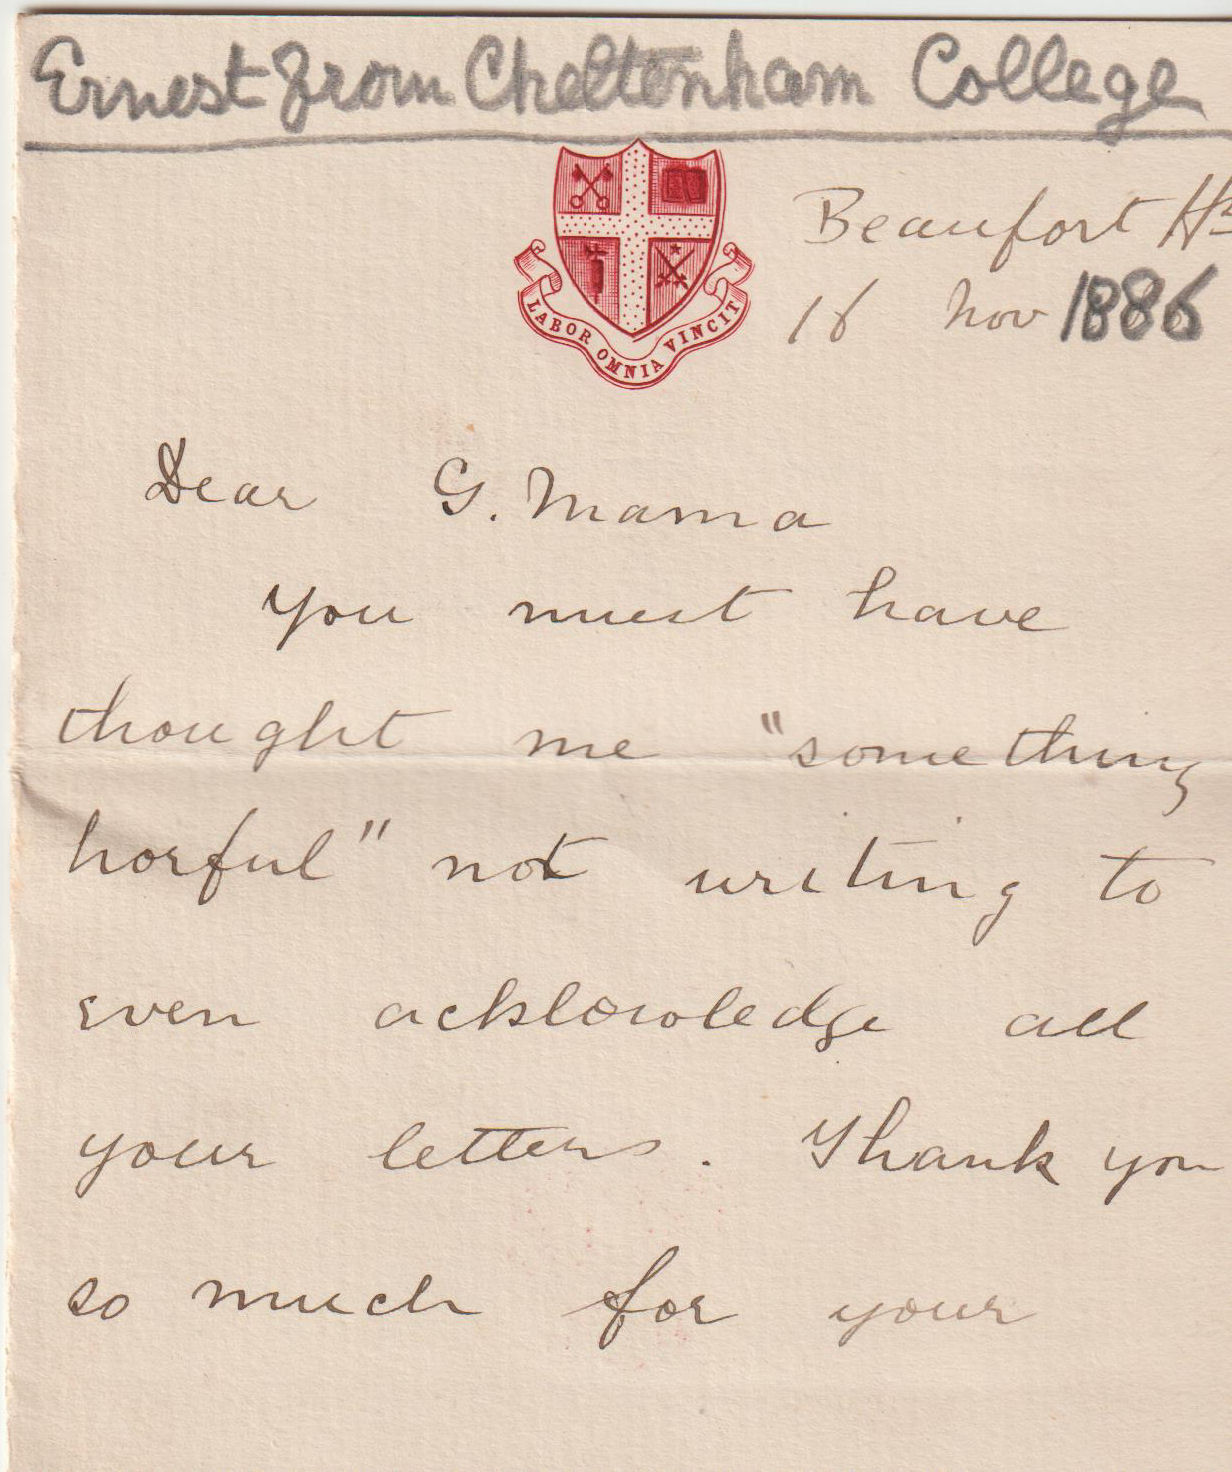 Ernest from Cheltenham College
Beaufort Hs
16 Nov 1886
LABOR OMNIA VINCIT
Dear G. Mama
you must have
thought me "something
horful" not writing to
even acklowledge all
your letters. Thank you
so much for your